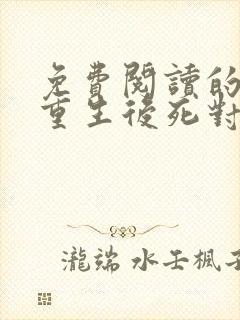 免費閱讀的
重生後死對
瀧端 水壬楓子